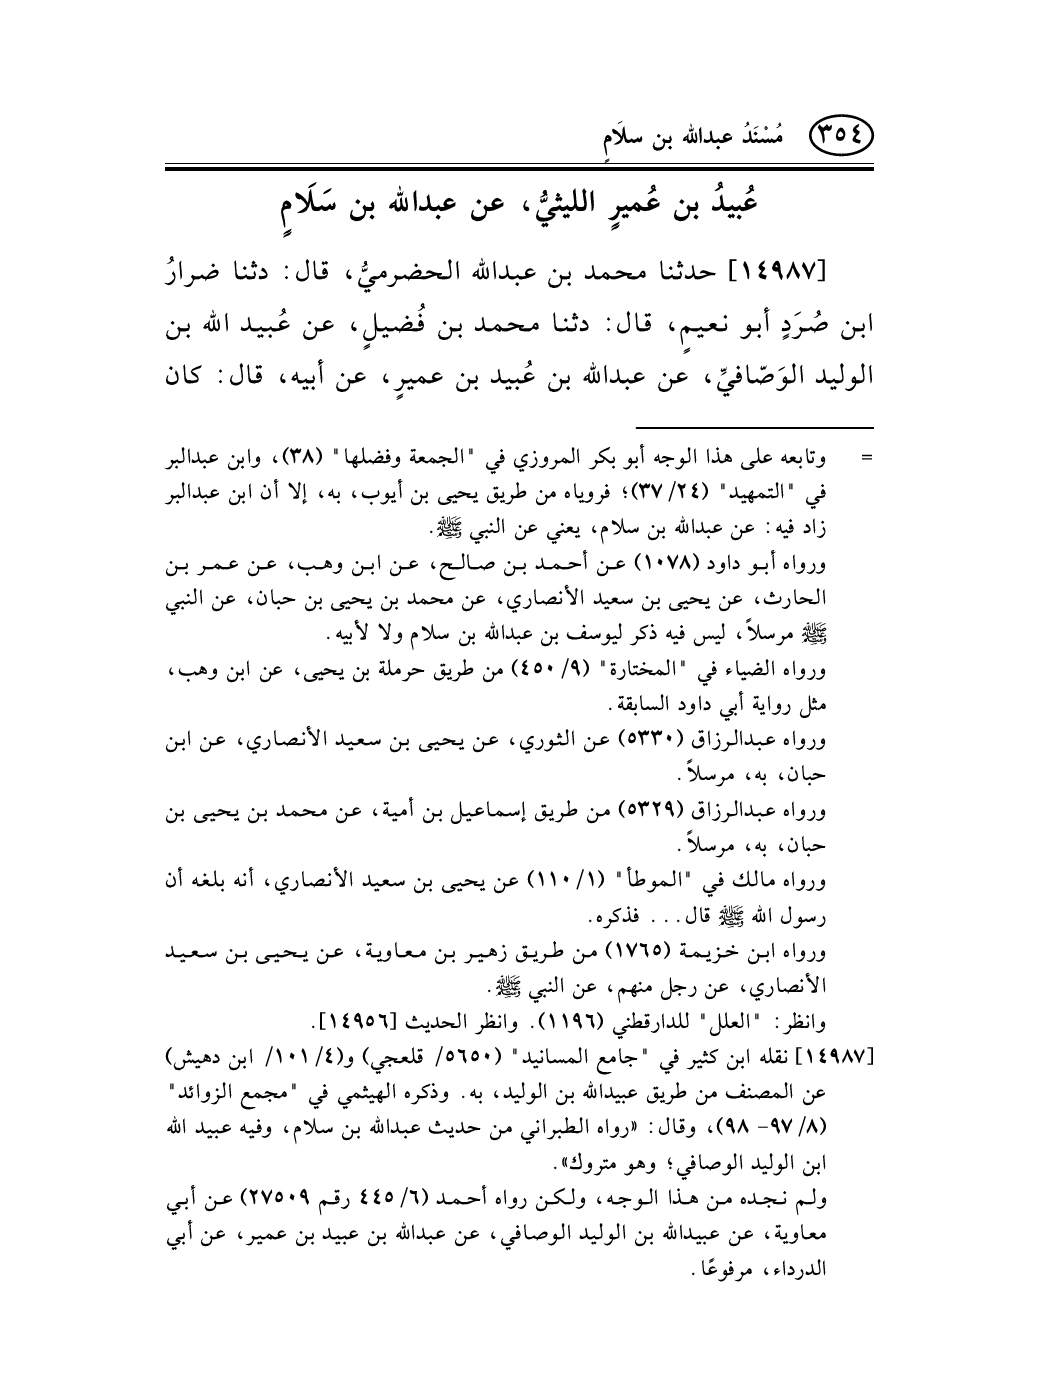 ٣٥٤ مُسْنَدُ عبدالله بن سلَامٍ
عُبيدُ بن عُميرٍ الليثيُّ، عن عبدالله بن سَلَامٍ
[١٤٩٨٧] حدثنا محمد بن عبدالله الحضرميُّ، قال: دثنا ضرارُ
ابن صُرَدٍ أبو نعيمٍ، قال: دثنا محمد بن فُضيلٍ، عن عُبيد الله بن
الوليد الوَصّافيِّ، عن عبدالله بن عُبيد بن عميرٍ، عن أبيه، قال: كان
= وتابعه على هذا الوجه أبو بكر المروزي في "الجمعة وفضلها" (٣٨)، وابن عبدالبر
في "التمهيد" (٢٤/ ٣٧)؛ فروياه من طريق يحيى بن أيوب، به، إلا أن ابن عبدالبر
زاد فيه: عن عبدالله بن سلام، يعني عن النبي ﷺ.
ورواه أبو داود (١٠٧٨) عن أحمد بن صالح، عن ابن وهب، عن عمر بن
الحارث، عن يحيى بن سعيد الأنصاري، عن محمد بن يحيى بن حبان، عن النبي
ﷺ مرسلاً، ليس فيه ذكر ليوسف بن عبدالله بن سلام ولا لأبيه.
ورواه الضياء في "المختارة" (٩/ ٤٥٠) من طريق حرملة بن يحيى، عن ابن وهب،
مثل رواية أبي داود السابقة.
ورواه عبدالرزاق (٥٣٣٠) عن الثوري، عن يحيى بن سعيد الأنصاري، عن ابن
حبان، به، مرسلاً.
ورواه عبدالرزاق (٥٣٢٩) من طريق إسماعيل بن أمية، عن محمد بن يحيى بن
حبان، به، مرسلاً.
ورواه مالك في "الموطأ" (١/ ١١٠) عن يحيى بن سعيد الأنصاري، أنه بلغه أن
رسول الله ﷺ قال... فذكره.
ورواه ابن خزيمة (١٧٦٥) من طريق زهير بن معاوية، عن يحيى بن سعيد
الأنصاري، عن رجل منهم، عن النبي ﷺ.
وانظر: "العلل" للدارقطني (١١٩٦). وانظر الحديث [١٤٩٥٦].
[١٤٩٨٧] نقله ابن كثير في "جامع المسانيد" (٥٦٥٠/ قلعجي) و(٤/ ١٠١/ ابن دهيش)
عن المصنف من طريق عبيدالله بن الوليد، به. وذكره الهيثمي في "مجمع الزوائد"
(٨/ ٩٧- ٩٨)، وقال: «رواه الطبراني من حديث عبدالله بن سلام، وفيه عبيد الله
ابن الوليد الوصافي؛ وهو متروك».
ولم نجده من هذا الوجه، ولكن رواه أحمد (٦/ ٤٤٥ رقم ٢٧٥٠٩) عن أبي
معاوية، عن عبيدالله بن الوليد الوصافي، عن عبدالله بن عبيد بن عمير، عن أبي
الدرداء، مرفوعًا.